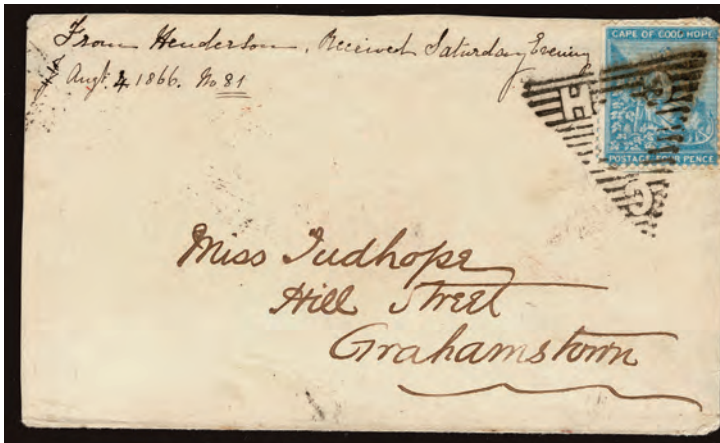 From Henderson, Received Saturday Evening
Augt. 4 1866. No 81
CAPE OF GOOD HOPE
POSTAGE FOUR PENCE
Miss Tudhope
Hill Street
Grahamstown